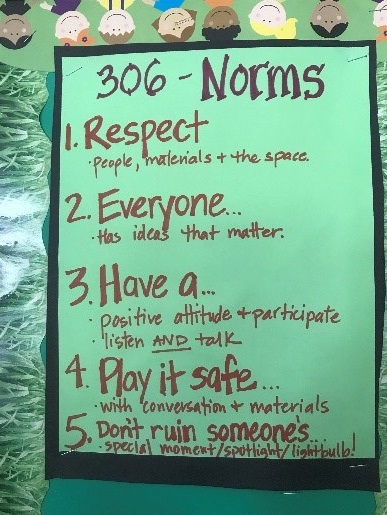 306 - Norms
1. Respect
· people, materials + the space.
2. Everyone...
· Has ideas that matter.
3. Have a...
· positive attitude + participate
· listen AND talk
4. Play it safe...
· with conversation + materials
5. Don't ruin someone's...
· special moment/spotlight/lightbulb!